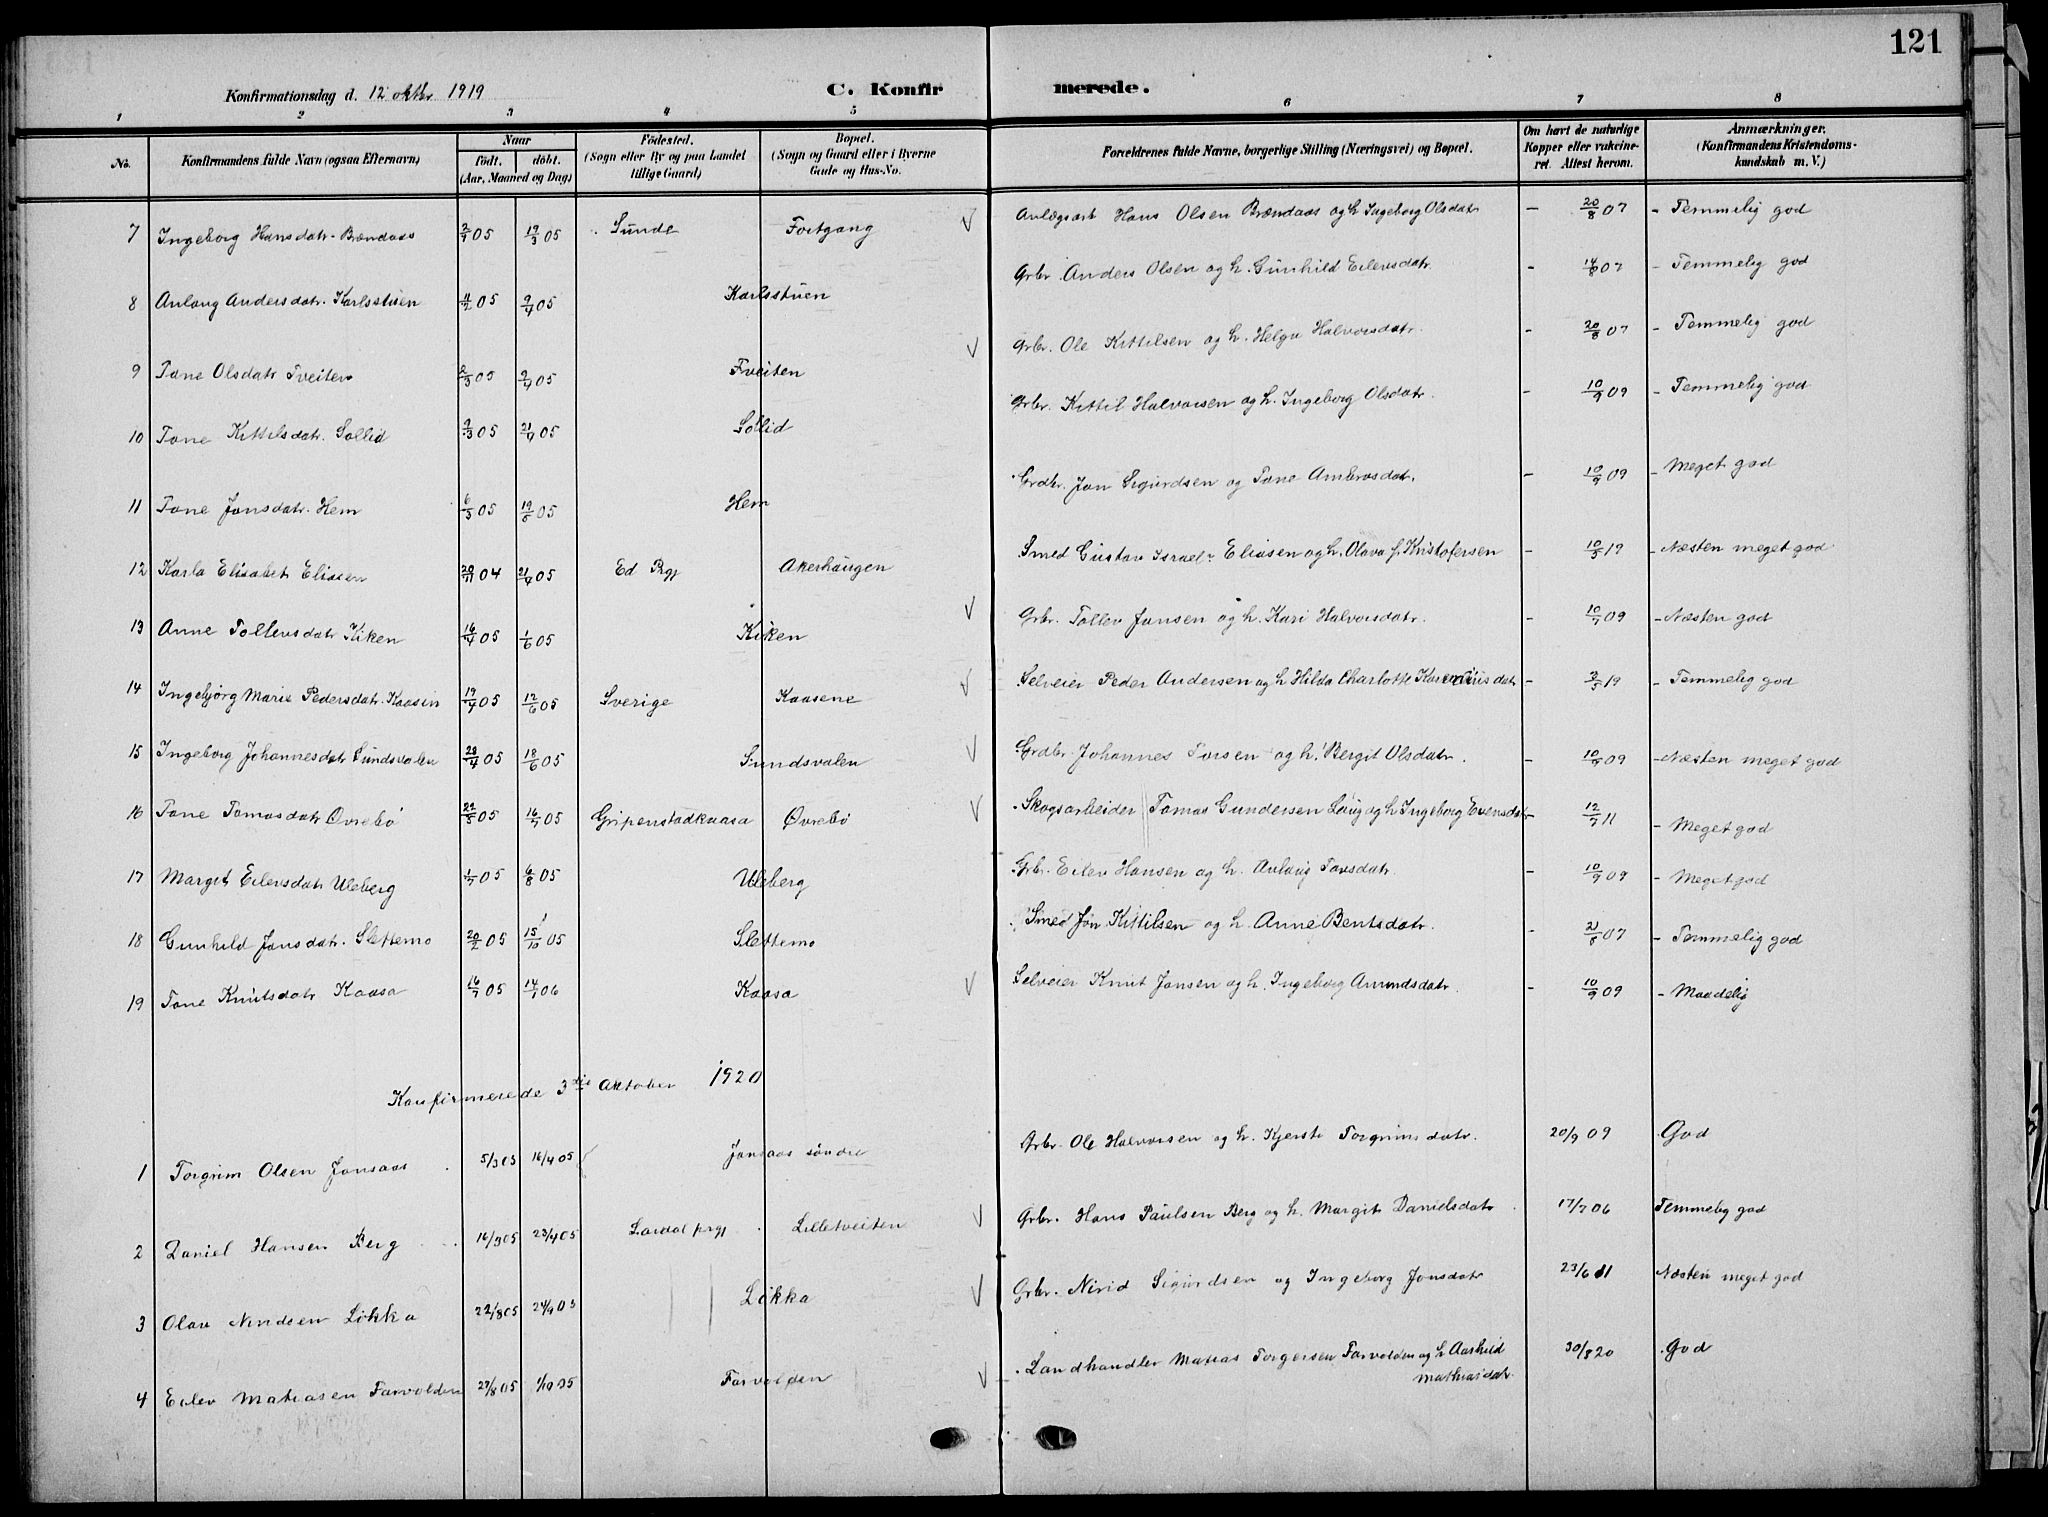 121
Konfirmationsdag d. 12 oktbr 1919 C. Konfirmerede.
1 2 3 4 5 6 7 8
No. Konfirmandens fulde Navn (ogsaa Efternavn) Naar födt. döbt. (Aar, Maaned og Dag) Födested. (Sogn eller By og paa Landet tillige Gaard) Bopæl. (Sogn og Gaard eller i Byerne Gade og Hus-No. Forældrenes fulde Navne, borgerlige Stilling (Næringsvei) og Bopæl. Om havt de naturlige Kopper eller vakcineret. Attest herom. Anmærkninger. (Konfirmandens Kristendomskundskab m. V.)
7 Ingeborg Hansdatr. Brændaas 2/1 05 19/3 05 Sunde Fortgang Anlægsarb Hans Olsen Brændaas og h. Ingeborg Olsdatr - 20/8 07 - Temmelig god
8 Anlaug Andersdatr. Karlsstuen 11/2 05 9/4 05 Karlsstuen Grbr. Anders Olsen og h. Gunhild Eilevsdatr. - 14/8 07 - Temmelig god
9 Tone Olsdatr Tveiten 2/3 05 9/4 05 Tveiten Grbr. Ole Kittilsen og h. Helga Halvorsdatr. - 20/8 07 - Temmelig god
10 Tone Kittilsdatr. Sollid 9/3 05 21/4 05 Sollid Grbr. Kittil Halvorsen og h. Ingeborg Olsdatr. - 10/9 09 - Temmelig god
11 Tone Jonsdatr. Hem 6/3 05 19/5 05 Hem Grdbr. Jon Sigurdsen og Tone Ambrosdatr. - 10/9 09 - Meget god
12 Karla Elisabet Eliasen 20/11 04 21/4 05 Ed Prgj Akerhaugen Smed Gustav Israel Eliasen og h. Olava f. Kristofersen - 10/5 19 - Næsten meget god
13 Anne Tollevsdatr Kiken 16/4 05 1/6 05 Kiken Grbr. Tollev Jonsen og h. Kari Halvorsdatr. - 10/7 09 - Næsten god
14 Ingebjørg Marie Pedersdatr. Kaasin 19/4 05 12/6 05 Sverige Kaasene Selveier Peder Andersen og h Hilda Charlotte datr - 2/5 19 - Temmelig god
15 Ingeborg Johannesdatr Sundsvalen 28/4 05 18/6 05 Sundsvalen Grdbr. Johannes Torsen og h. Bergit Olsdatr. - 10/9 09 - Næsten meget god
16 Tone Tomasdatr Øvrebø 22/5 05 16/7 05 Gripenstadkaasa Øvrebø Skogsarbeider Tomas Gundersen og h Ingeborg Evensdatr - 12/7 11 - Meget god
17 Margit Eilevsdatr Uleberg 1/7 05 6/8 05 Uleberg Grbr. Eilev Hansen og h. Anlaug Tovsdatr. - 10/9 09 - Meget god
18 Gunhild Jonsdatr. Slettemo 20/2 05 15/10 05 Slettemo Smed Jon Kittilsen og h. Anne Bentsdatr. - 21/8 07 - Temmelig god
19 Tone Knutsdatr Kaasa 16/7 05 14/1 06 Kaasa Selveier Knut Jonsen og h. Ingeborg Amundsdatr. - 10/9 09 - Maadelig
Konfirmerede 3die Oktober 1920
1 Torgrim Olsen Jonsaas 5/3 05 16/4 05 Jonsaas søndre Grbr. Ole Halvorsen og h. Kjersti Torgrimsdatr. 20/9 09 God
2 Daniel Hansen Berg 16/3 05 23/4 05 Lardal prgj. Lilletveiten Grbr. Hans Paulsen Berg og h. Margit Danielsdatr 17/7 06 Temmelig god
3 Olav Niridsen Løkka 22/8 05 24/9 05 Løkka Grbr. Nirid Sigurdsen og Ingeborg Jonsdatr 23/6 11 Næsten meget god
4 Eilev Matiasen Farvolden 27/8 05 1/10 05 Farvolden Landhandler Matias Torgersen Farvolden og h Aashild Mathiasdatr. 30/8 20 God